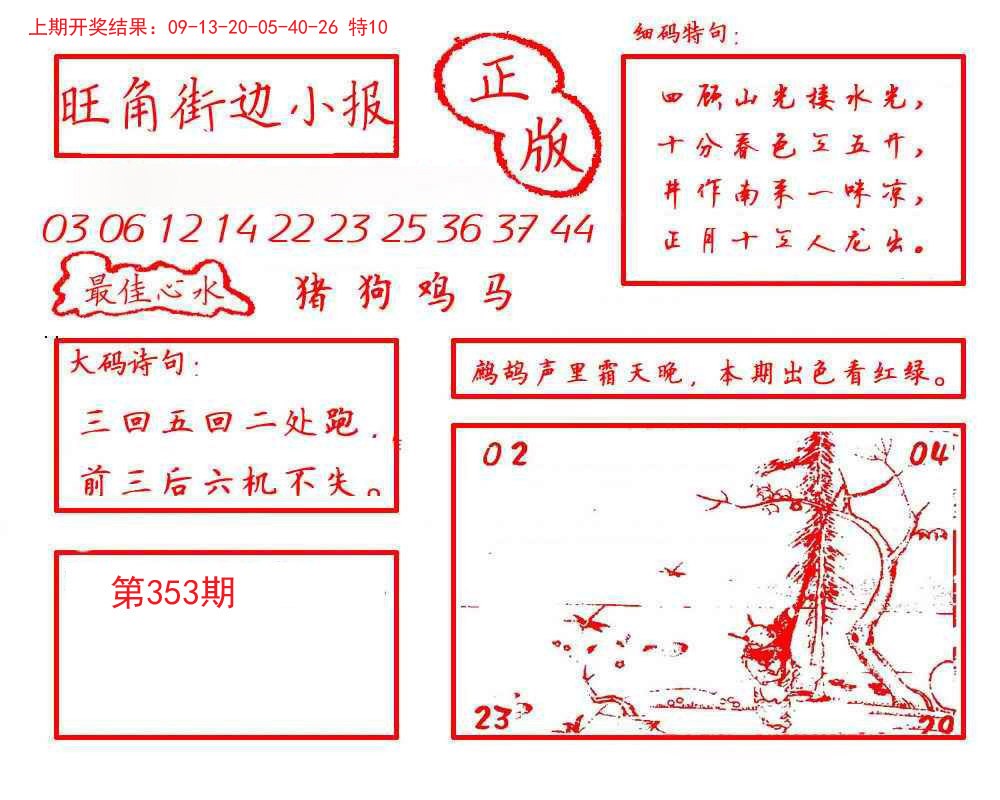 上期开奖结果: 09-13-20-05-40-26 特10
旺角街边小报
正
版
细码特句:
四顾山光接水光,
十分春色至五开,
井作南来一味凉,
正月十至人龙出。
03 06 12 14 22 23 25 36 37 44
最佳心水
猪 狗 鸡 马
大码诗句:
三回五回二处跑.
前三后六机不失。
鹧鸪声里霜天晚, 本期出色看红绿。
02
04
23
20
第353期